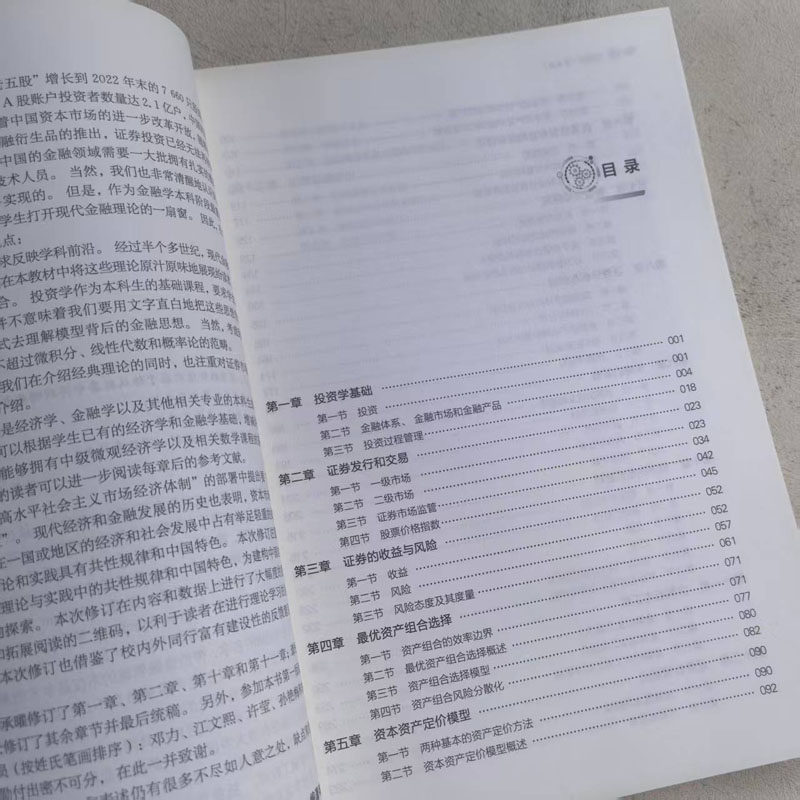 五股”增长到 2022 年末的 7 660
A 股账户投资者数量达 2.1 亿户，中
着中国资本市场的进一步改革开放，
融衍生品的推出，证券投资已经无
中国的金融领域需要一大批拥有扎实
技术人员。 当然，我们也非常清醒地认
实现的。 但是，作为金融学本科阶段
学生打开现代金融理论的一扇窗。 因此，
点：
求反映学科前沿。 经过半个多世纪，现代
在本教材中将这些理论原汁原味地展现
合。 投资学作为本科生的基础课程，要求
并不意味着我们要用文字直白地把这些思
式去理解模型背后的金融思想。 当然，考
不超过微积分、线性代数和概率论的范畴。
我们在介绍经典理论的同时，也注重对证券
介绍。
是经济学、金融学以及其他相关专业的本科
可以根据学生已有的经济学和金融学基础，
能够拥有中级微观经济学以及相关数学课程
的读者可以进一步阅读每章后的参考文献。
高水平社会主义市场经济体制”的部署中提出
”。 现代经济和金融发展的历史也表明，资本市
在一国或地区的经济和社会发展中占有举足轻重
论和实践具有共性规律和中国特色。本次修订
理论与实践中的共性规律和中国特色，为建构中
的探索。 本次修订在内容和数据上进行了大幅度
拓展阅读的二维码，以利于读者在进行理论学习
本次修订也借鉴了校内外同行富有建设性的反馈
承曜修订了第一章、第二章、第十章和第十一章；
修订了其余章节并最后统稿。 另外，参加本书第一
员（按姓氏笔画排序）：邓力、江文熙、许莹、孙艳梅
勤付出密不可分，在此一并致谢。
表述仍有很多不尽如人意之处，缺点
目 录
第一章 投资学基础 001
第一节 投资 001
第二节 金融体系、金融市场和金融产品 004
第三节 投资过程管理 018
第二章 证券发行和交易 023
第一节 一级市场 023
第二节 二级市场 034
第三节 证券市场监管 042
第四节 股票价格指数 045
第三章 证券的收益与风险 052
第一节 收益 052
第二节 风险 057
第三节 风险态度及其度量 061
第四章 最优资产组合选择 071
第一节 资产组合的效率边界 071
第二节 最优资产组合选择概述 077
第三节 资产组合选择模型 080
第四节 资产组合风险分散化 082
第五章 资本资产定价模型 090
第一节 两种基本的资产定价方法 090
第二节 资本资产定价模型概述 092